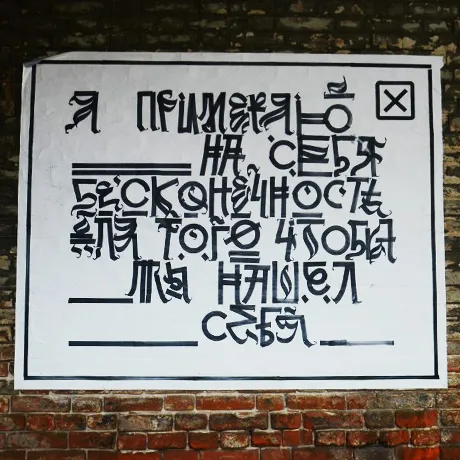 Я ПРИМЕРЯЮ
НА СЕБЯ
БЕСКОНЕЧНОСТЬ
ДЛЯ ТОГО ЧТОБЫ
ТЫ НАШЕЛ
СЕБЯ